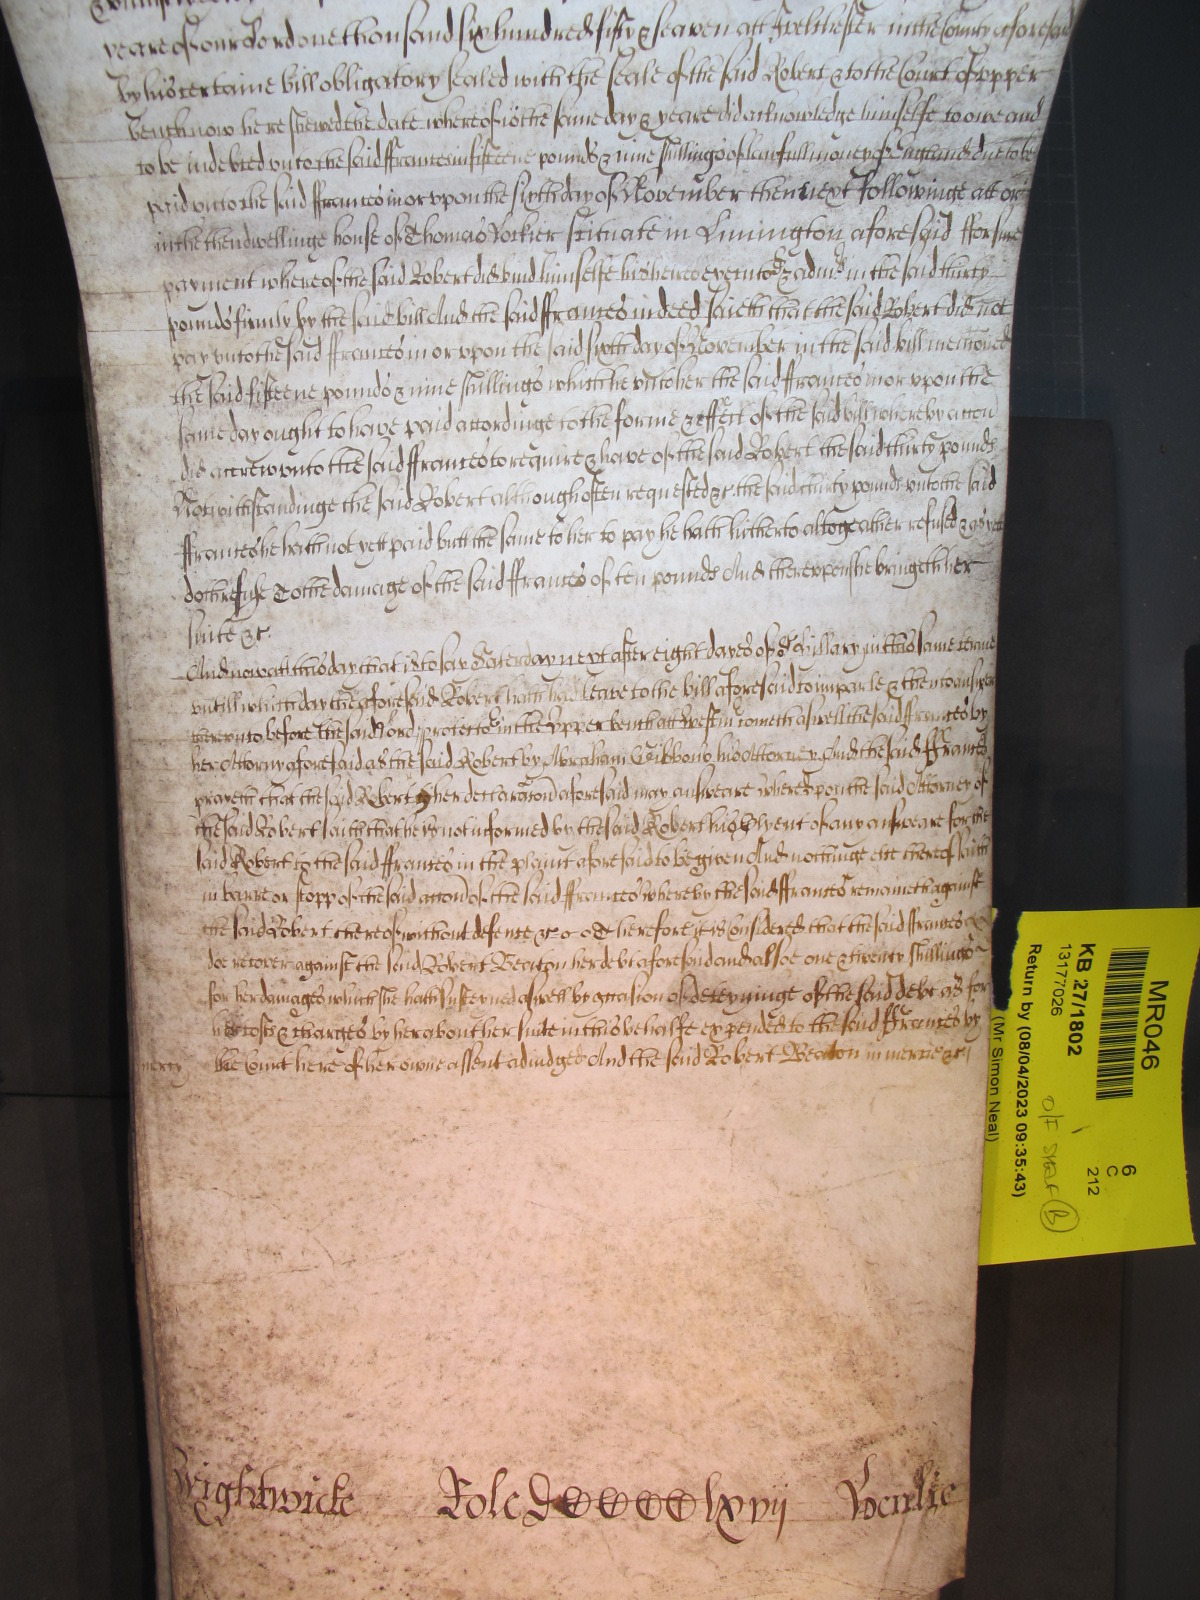 yeare of our Lord one thousand six hundred fifty & seaven att Ivelchester in the County aforesaid
by his certaine bill obligatory sealed with the seale of the said Robert & to the Court of upper
bench now here shewed the date whereof is the same day & yeare did acknowledge himselfe to owe and
to be indebted unto the said ffrances in fifteene pounds & nine shillings of lawfull money of England due to be
paid unto the said ffrances in or upon the sixth day of November then next followinge att or
in the then dwellinge house of Thomas Lockier scituate in Limington aforesaid ffor sure
payment whereof the said Robert did bind himselfe his heires executors & admrs in the said thirty
pounds firmly by the said bill And the said ffrances indeed saieth that the said Robert did not
pay unto the said ffrances in or upon the said sixth day of November in the said bill mencioned
the said fifteene pounds & nine shillings which he unto her the said ffrances in or upon the
same day ought to have paid accordinge to the forme & effect of the said bill whereby accon
did accrew unto the said ffrances to require & have of the said Robert the said thirty pounds
Notwithstandinge the said Robert although often requested &c the said thirty pounds unto the said
ffrances he hath not yett paid butt the same to her to pay he hath hitherto altogeather refused & as yett
doth refuse To the damage of the said ffrances of ten pounds And thereupon she bringeth her
suite &c.
And now att this day that is to say Saterday next after eight dayes of St Hillary in this same terme
untill which day the aforesaid Robert hath had leave to the bill aforesaid to imparle & then to answer
thereunto before the said Lord protector in the Upper bench att Westmr cometh aswell the said ffrances by
her Attorny aforesaid as the said Robert by Abraham Gibbons his Attorney And the said ffrances
prayeth that the said Robert to her declaracon aforesaid may answeare whereupon the said Attorney of
the said Robert saith that he is not informed by the said Robert his Clyent of any answeare for the
said Robert to the said ffrances in the plaint aforesaid to be given And nothinge else thereof saith
in barre or stopp of the said accon of the said ffrances whereby the said ffrances remaineth against
the said Robert thereof without defence &c Therefore it is Considered that the said ffrances
doe recover against the said Robert Beaton her debt aforesaid and alsoe one & twenty shillings
for her damages which she hath susteyned aswell by occasion of deteyninge of the said debt as for
her costs & charges by her about her suite in this behalfe expended to the said ffrances by
mercy the Court here of her owne assent adiudged And the said Robert Beaton in mercie &c
Wightwicke Rolc DCCCCClxvij
MR046
KB 27/1802
13177026
Return by (08/04/2023 09:35:43)
(Mr Simon Neal)
6
C
212
O/F SHELF B